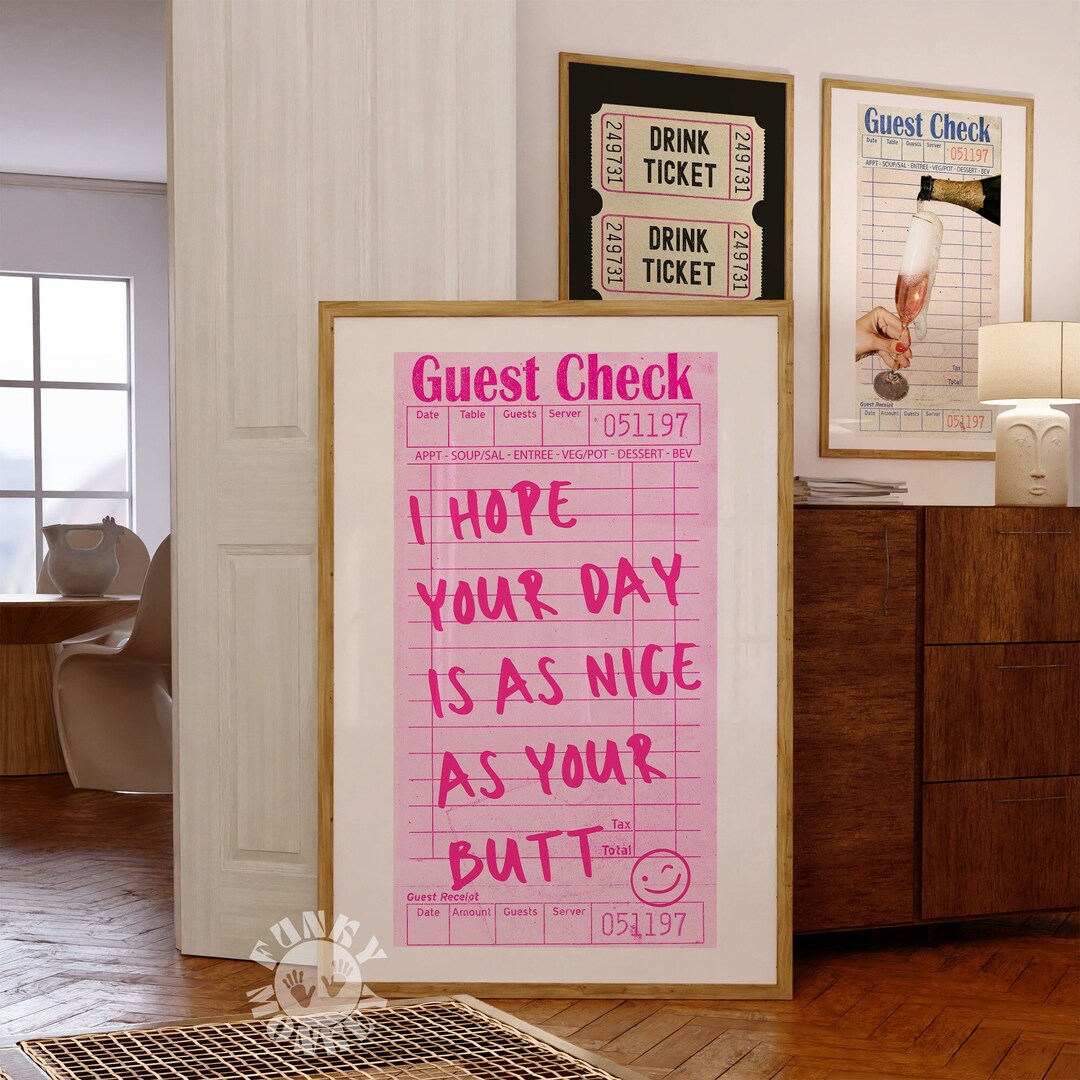 DRINK
TICKET
249731
249731
DRINK
TICKET
249731
249731
Guest Check
Date Table Guests Server
051197
APPT - SOUP/SAL - ENTREE - VEG/POT - DESSERT - BEV
Tax
Total
Guest Receipt
Date Amount Guests Server
051197
Guest Check
Date Table Guests Server
051197
APPT - SOUP/SAL - ENTREE - VEG/POT - DESSERT - BEV
I HOPE
YOUR DAY
IS AS NICE
AS YOUR
BUTT
Tax
Total
Guest Receipt
Date Amount Guests Server
051197
FUNKY
MONK